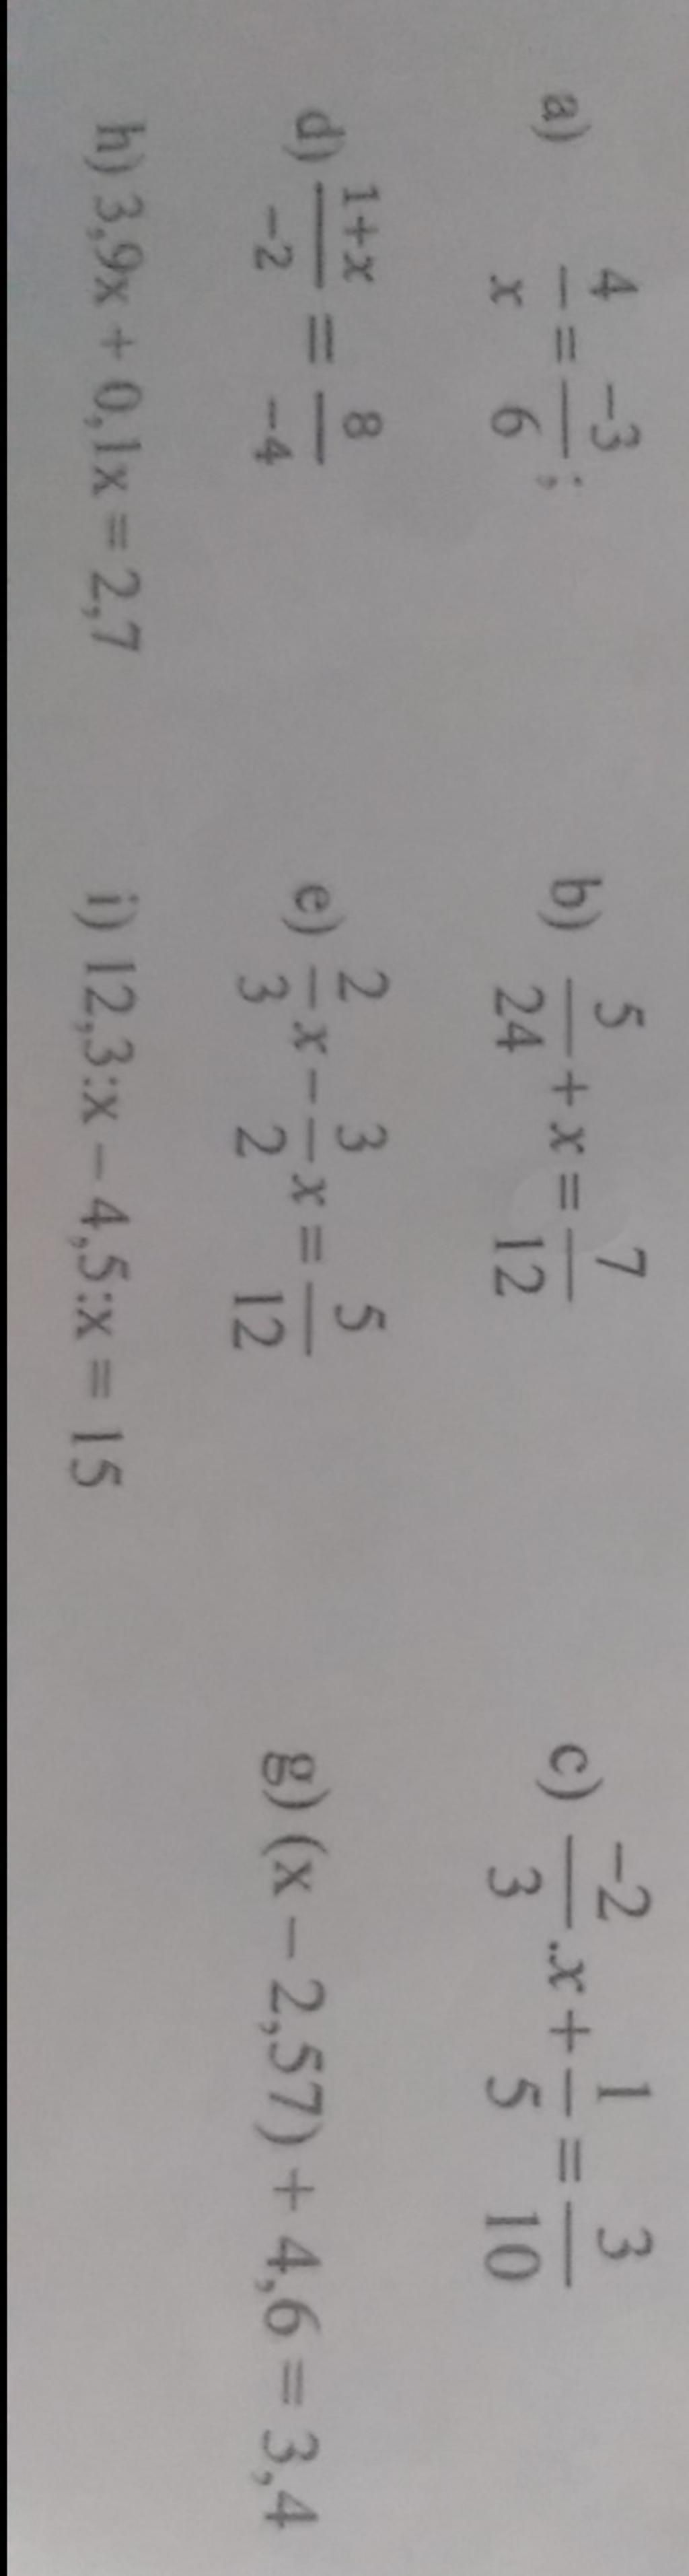 a) 4/x = -3/6; b) 5/24 + x = 7/12 c) -2/3 .x + 1/5 = 3/10
d) 1+x/-2 = 8/-4 e) 2/3 x - 3/2 x = 5/12 g) (x – 2,57) + 4,6 = 3,4
h) 3,9x + 0,1x = 2,7 i) 12,3:x – 4,5:x = 15